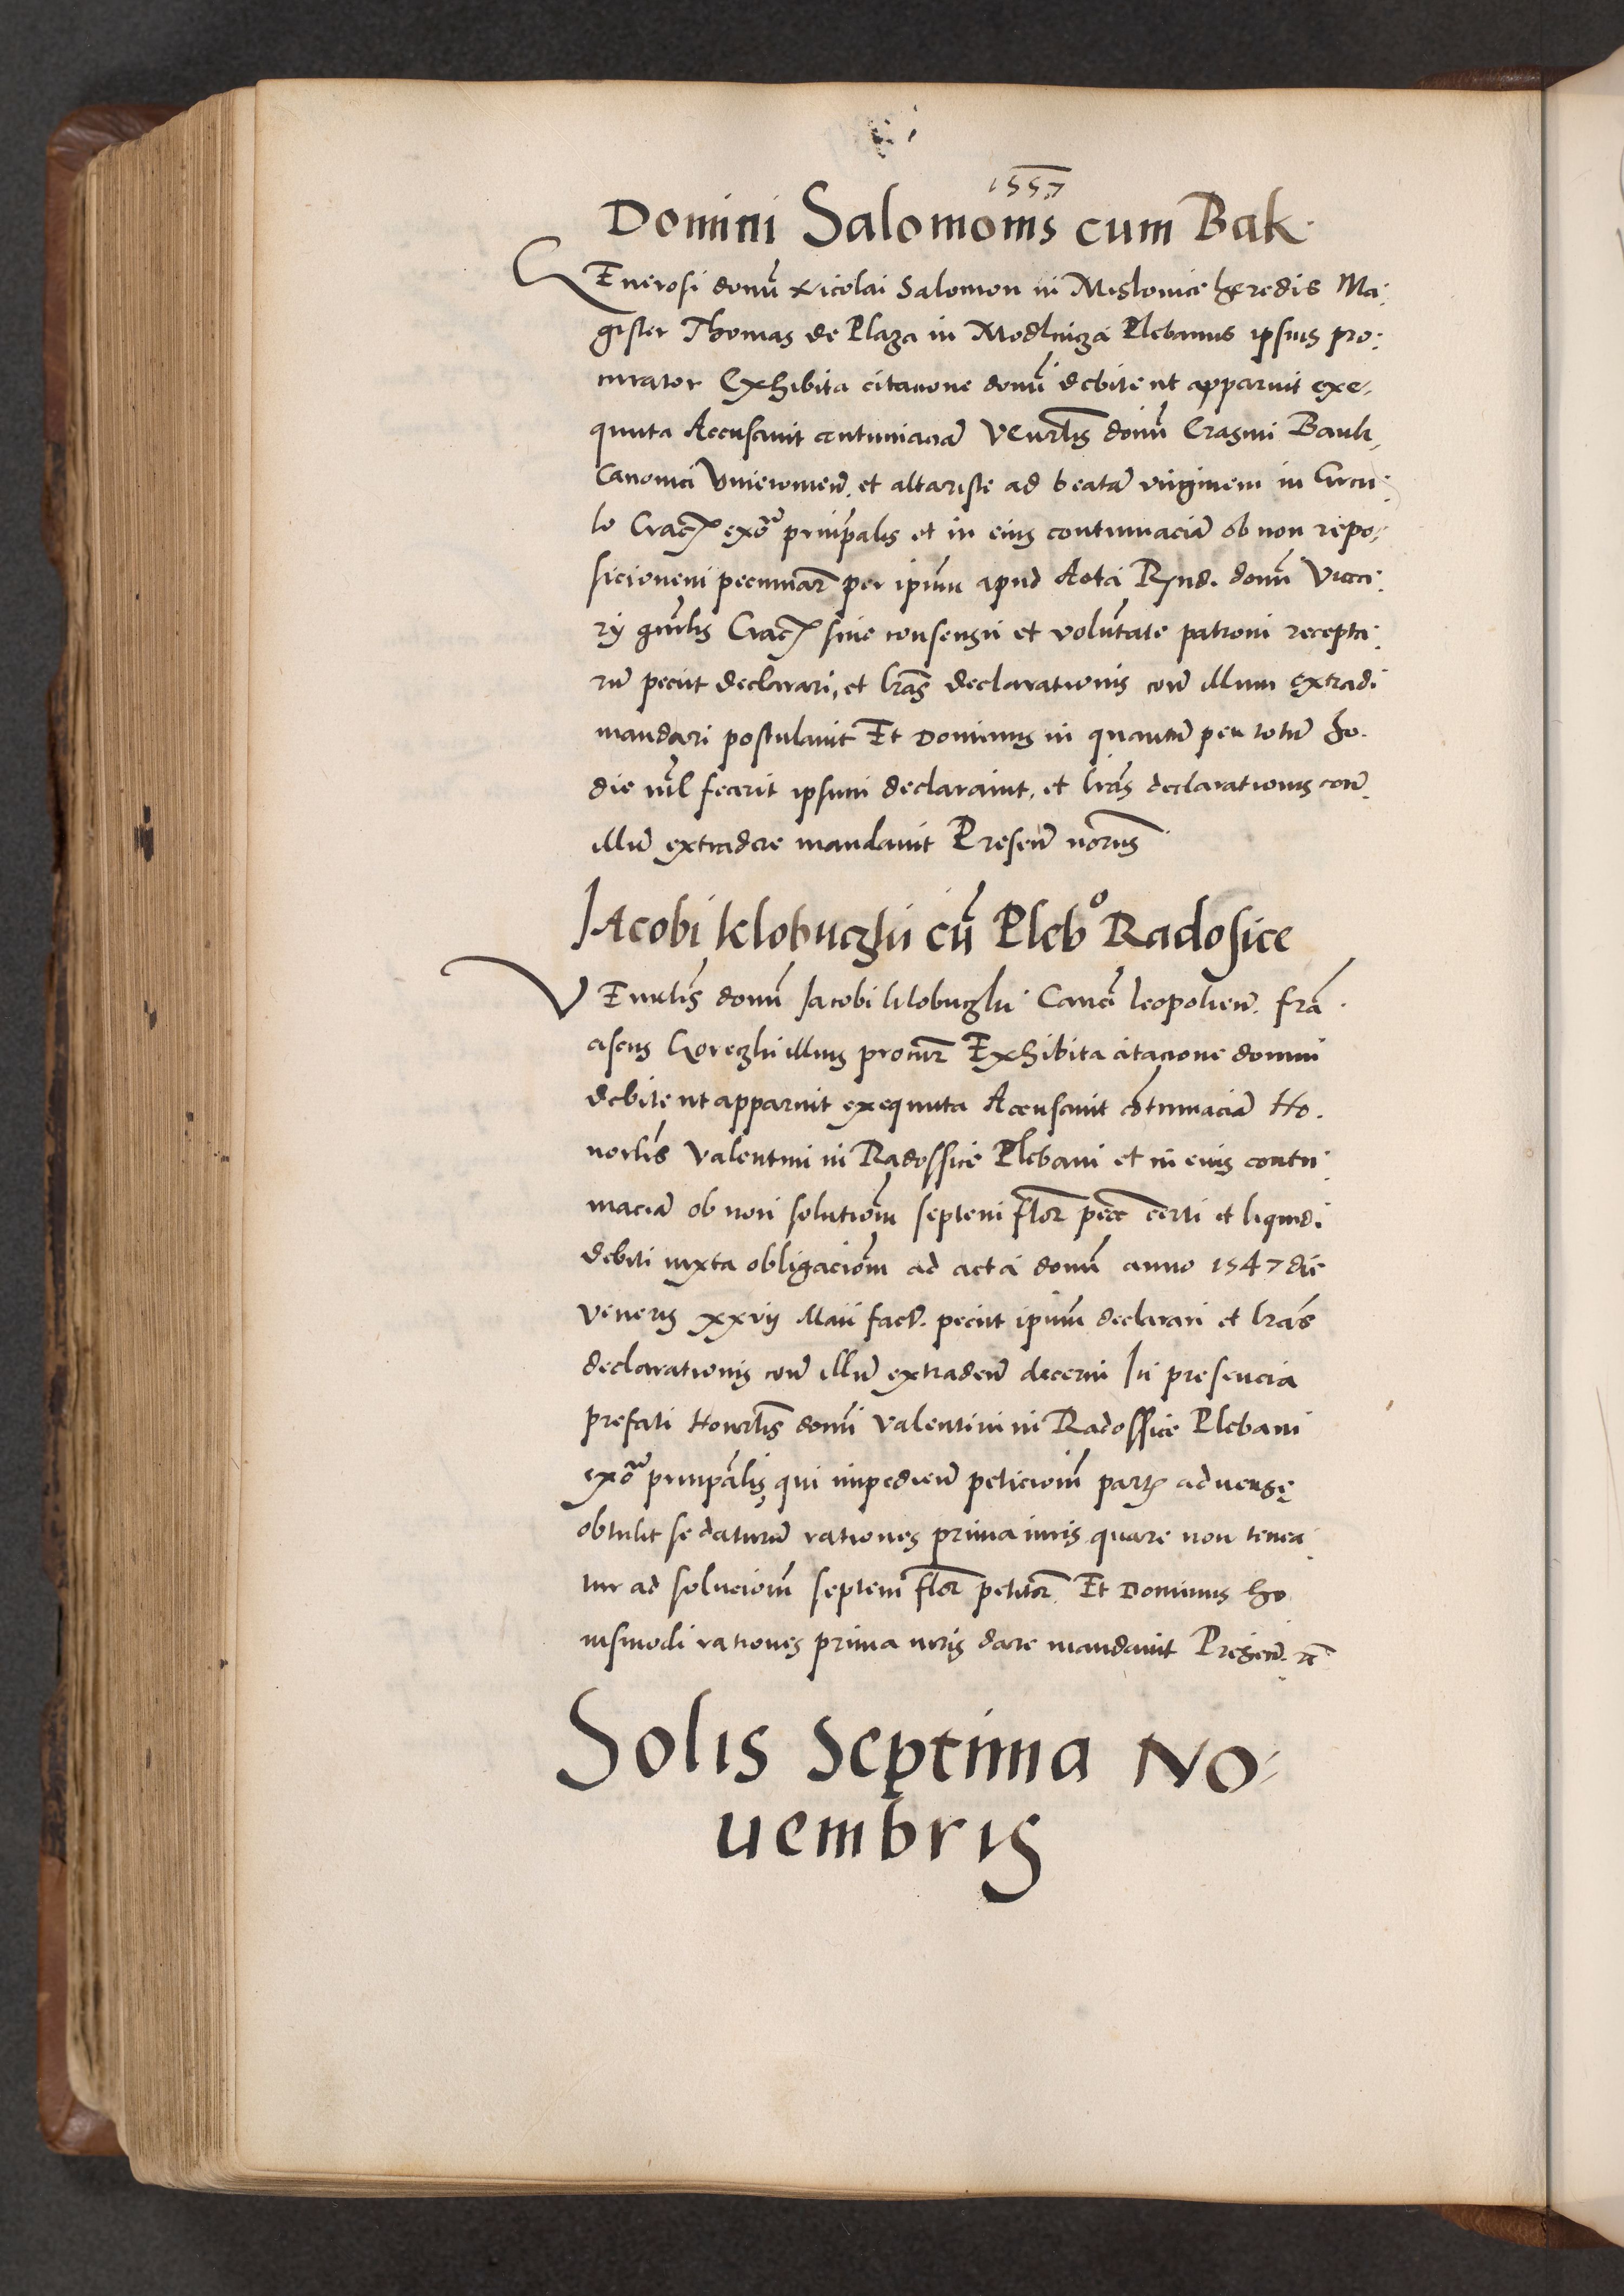 1557
Domini Salomonis cum Bak
GEnerosi domĩ Nicolai Salomon in Mislovice heredis Ma-
gister Thomas de Plaza in Modlnicza Plebanus ipsius pro-
curator Exhibita citatione domĩ debite ut apparuit exe-
quuta Accusavit contumaciã Venerlis domĩ Erasmi Bank
Canonici Unieiowieñ. et altariste ad beatã virginem in Circu-
lo Crac exõr principalis et in eius contumaciã ob non repo-
sicionem pecuniar per ipsum apud Acta Rynd. domĩ Vica-
rij gnrlis Crac sine consensu et voluntate patroni recepta-
rũ peciit declarari, et lras declarationis con illum extradi
mandari postulavit Et Dominus in quantũ per totũ ho-
die nil fecerit ipsum declaravit, et lras declarationis con
illũ extradere mandavit Preseñ notariis
JAcobi Klobuczki cũ Plebo Radosice
VEnerlis domĩ Jacobi Klobuczki Canci Leopolieñ. Fran-
ciscus Goreczki illius procur Exhibita citacione domini
debite ut apparuit exequuta Accusavit cõtumaciã Ho-
norlis Valentini in Radossice Plebani et in eius contu-
maciã ob non solutiom septem flor pecc certi et liquidi
debiti iuxta obligaciom ad acta domĩ anno 1547 die
veneris xxvij Maii fact. peciit ipsum declarari et lras
declarationis con illũ extradeñ decerni In presencia
prefati Honorlis domĩ Valentini in Radossice Plebani
exõr principalis, qui impedieñ peticiom partis adverse
obtulit se daturũ rationes prima iuris quare non tenea-
tur ad soluciom septem flor petitor Et Dominus hu-
iusmodi rationes prima iuris dare mandavit Preseñ.
Solis Septima No-
uembris